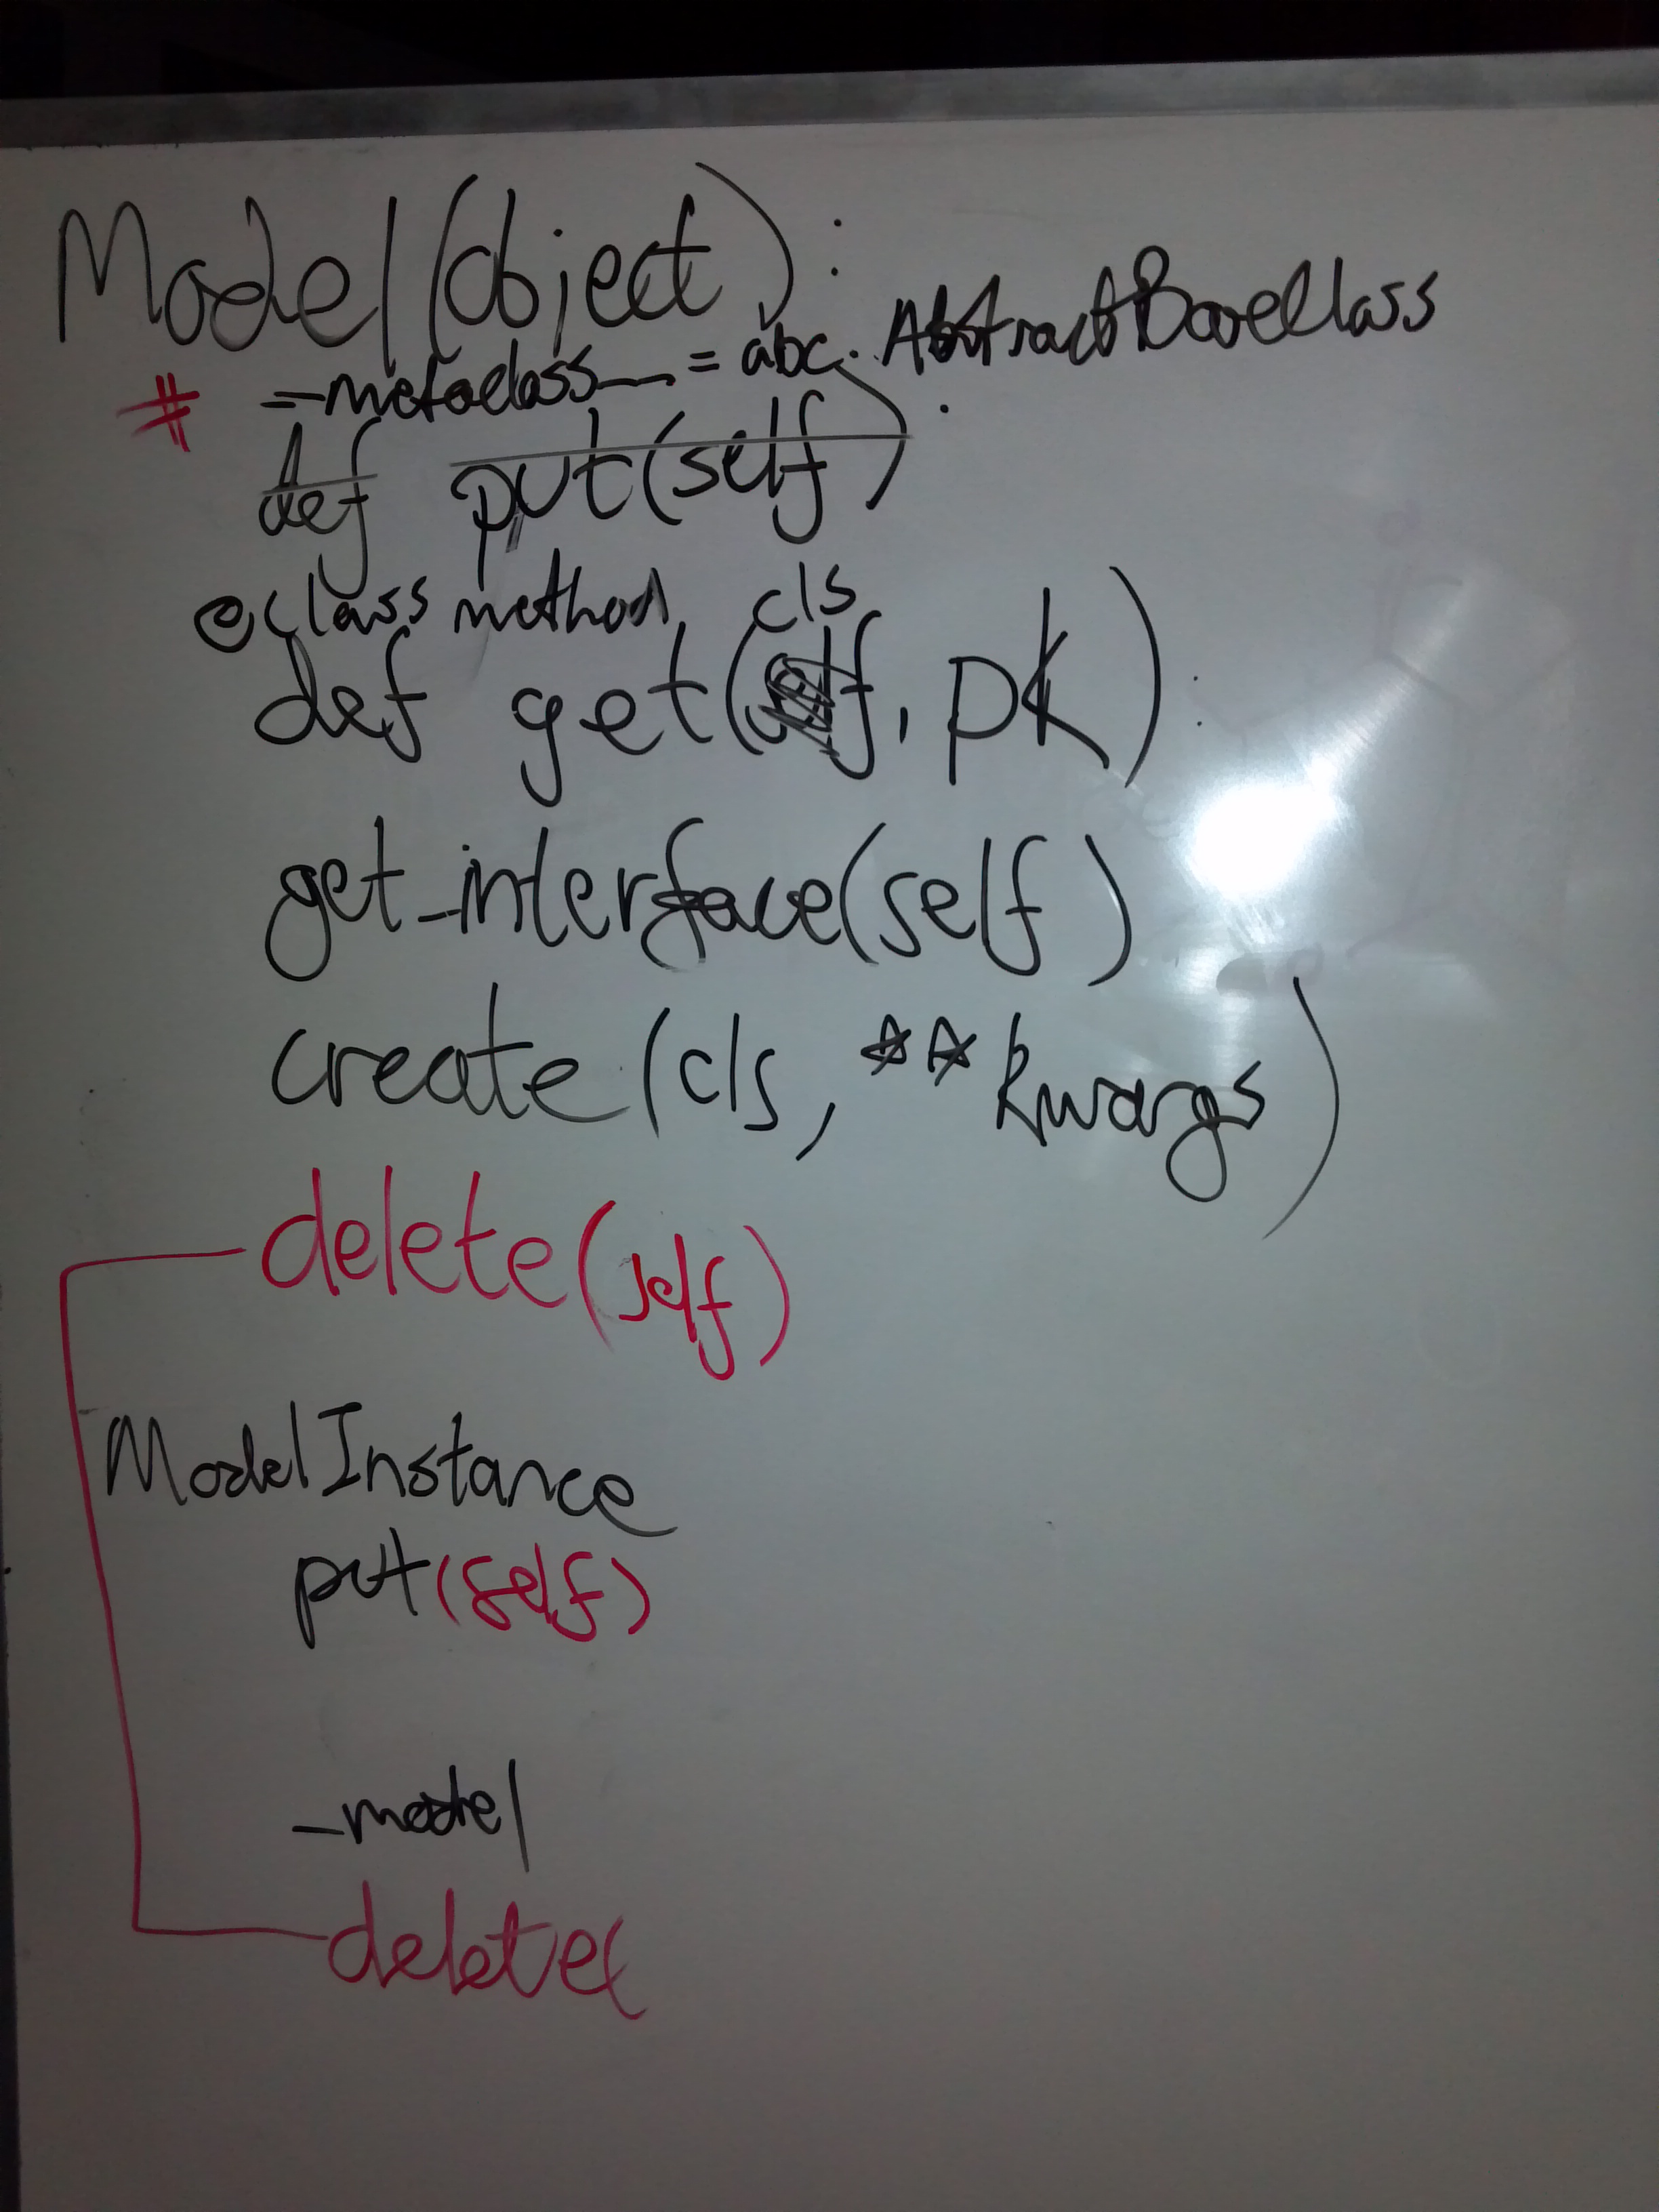 Model(object):
# __metaclass__ = abc.AbstractBaseClass
def put(self):
@classmethod
cls
def get(self, pk):
get_interface(self)
create(cls, **kwargs)
delete(self)
ModelInstance
put(self)
_model
delete(